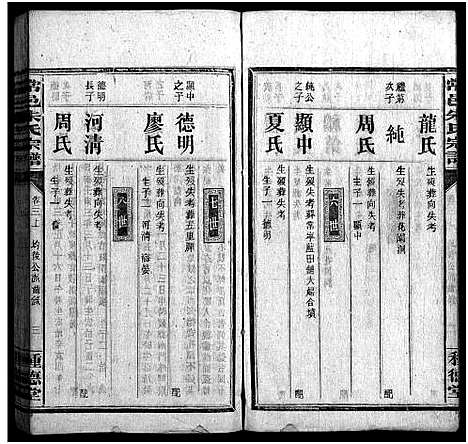 常邑朱氏宗譜
龍氏
生歿葬向失考
禮第次子
純
生歿失考葬花園洞
周氏
生歿葬向失考
生子一 顯中
六世
純公之子
顯中
生歿失考葬常寧藍田舖大屆合墳
夏氏
生歿葬向失考
生子一 德明
種德堂
七世
顯中之子
德明
生歿失考葬五里牌
廖氏
生歿葬向失考
生子二 河清 海晏
配
八世
德明長子
河清
生歿葬向失考
周氏
生歿葬向失考
生子一
配
常邑朱氏宗譜
卷三上
均後公派齒錄
三
種德堂